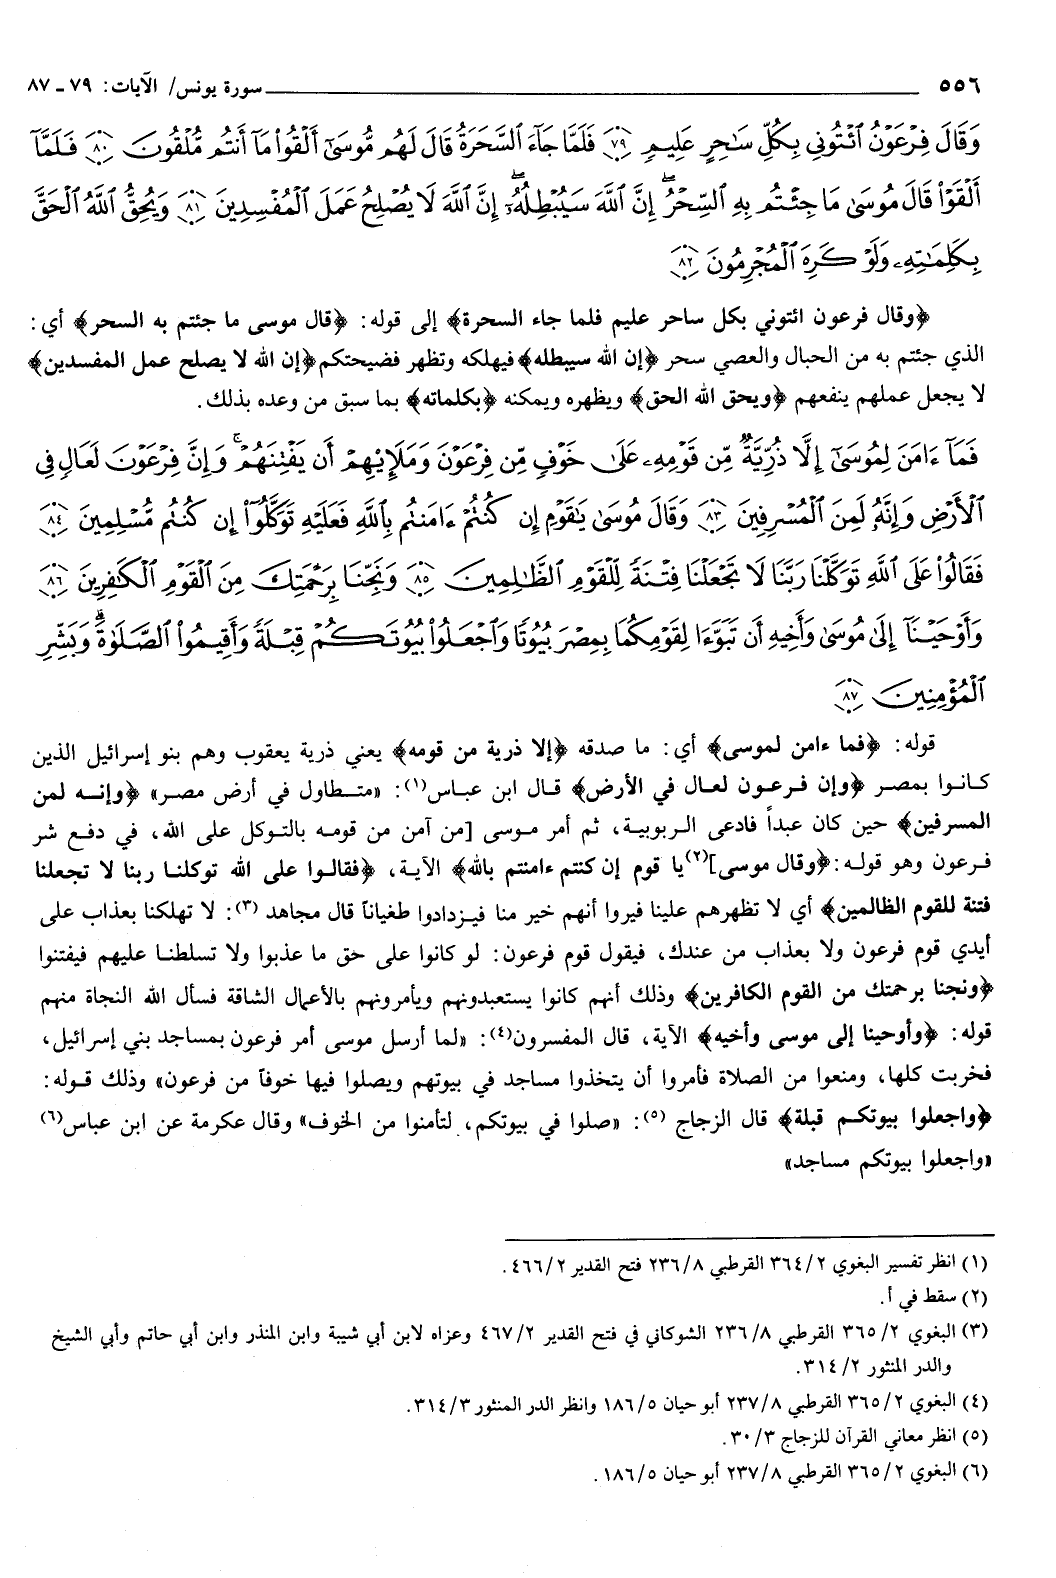 ٥٥٦ سورة يونس/ الآيات: ٧٩ - ٨٧
وَقَالَ فِرْعَوْنُ ائْتُونِي بِكُلِّ سَٰحِرٍ عَلِيمٍ ٧٩ فَلَمَّا جَآءَ ٱلسَّحَرَةُ قَالَ لَهُم مُّوسَىٰٓ أَلْقُوا۟ مَآ أَنتُم مُّلْقُونَ ٨٠ فَلَمَّآ
أَلْقَوْا۟ قَالَ مُوسَىٰ مَا جِئْتُم بِهِ ٱلسِّحْرُ إِنَّ ٱللَّهَ سَيُبْطِلُهُۥٓ إِنَّ ٱللَّهَ لَا يُصْلِحُ عَمَلَ ٱلْمُفْسِدِينَ ٨١ وَيُحِقُّ ٱللَّهُ ٱلْحَقَّ
بِكَلِمَٰتِهِۦ وَلَوْ كَرِهَ ٱلْمُجْرِمُونَ ٨٢
﴿وقال فرعون ائتوني بكل ساحر عليم فلما جاء السحرة﴾ إلى قوله: ﴿قال موسى ما جئتم به السحر﴾ أي:
الذي جئتم به من الحبال والعصي سحر ﴿إن الله سيبطله﴾ فيهلكه وتظهر فضيحتكم ﴿إن الله لا يصلح عمل المفسدين﴾
لا يجعل عملهم ينفعهم ﴿ويحق الله الحق﴾ ويظهره ويمكنه ﴿بكلماته﴾ بما سبق من وعده بذلك.
فَمَآ ءَامَنَ لِمُوسَىٰٓ إِلَّا ذُرِّيَّةٌ مِّن قَوْمِهِۦ عَلَىٰ خَوْفٍ مِّن فِرْعَوْنَ وَمَلَإِي۟هِمْ أَن يَفْتِنَهُمْ ۚ وَإِنَّ فِرْعَوْنَ لَعَالٍ فِي
ٱلْأَرْضِ وَإِنَّهُۥ لَمِنَ ٱلْمُسْرِفِينَ ٨٣ وَقَالَ مُوسَىٰ يَٰقَوْمِ إِن كُنتُمْ ءَامَنتُم بِٱللَّهِ فَعَلَيْهِ تَوَكَّلُوٓا۟ إِن كُنتُم مُّسْلِمِينَ ٨٤
فَقَالُوا۟ عَلَى ٱللَّهِ تَوَكَّلْنَا رَبَّنَا لَا تَجْعَلْنَا فِتْنَةً لِّلْقَوْمِ ٱلظَّٰلِمِينَ ٨٥ وَنَجِّنَا بِرَحْمَتِكَ مِنَ ٱلْقَوْمِ ٱلْكَٰفِرِينَ ٨٦
وَأَوْحَيْنَآ إِلَىٰ مُوسَىٰ وَأَخِيهِ أَن تَبَوَّءَا لِقَوْمِكُمَا بِمِصْرَ بُيُوتًا وَٱجْعَلُوا۟ بُيُوتَكُمْ قِبْلَةً وَأَقِيمُوا۟ ٱلصَّلَوٰةَ ۗ وَبَشِّرِ
ٱلْمُؤْمِنِينَ ٨٧
قوله: ﴿فما ءامن لموسى﴾ أي: ما صدقه ﴿إلا ذرية من قومه﴾ يعني ذرية يعقوب وهم بنو إسرائيل الذين
كانوا بمصر ﴿وإن فرعون لعال في الأرض﴾ قال ابن عباس(١): «متطاول في أرض مصر» ﴿وإنه لمن
المسرفين﴾ حين كان عبداً فادعى الربوبية، ثم أمر موسى [من آمن من قومه بالتوكل على الله، في دفع شر
فرعون وهو قوله: ﴿وقال موسى](٢) يا قوم إن كنتم ءامنتم بالله﴾ الآية، ﴿فقالوا على الله توكلنا ربنا لا تجعلنا
فتنة للقوم الظالمين﴾ أي لا تظهرهم علينا فيروا أنهم خير منا فيزدادوا طغياناً قال مجاهد (٣): لا تهلكنا بعذاب على
أيدي قوم فرعون ولا بعذاب من عندك، فيقول قوم فرعون: لو كانوا على حق ما عذبوا ولا تسلطنا عليهم فيفتنوا
﴿ونجنا برحمتك من القوم الكافرين﴾ وذلك أنهم كانوا يستعبدونهم ويأمرونهم بالأعمال الشاقة فسأل الله النجاة منهم
قوله: ﴿وأوحينا إلى موسى وأخيه﴾ الآية، قال المفسرون(٤): «لما أرسل موسى أمر فرعون بمساجد بني إسرائيل،
فخربت كلها، ومنعوا من الصلاة فأمروا أن يتخذوا مساجد في بيوتهم ويصلوا فيها خوفاً من فرعون» وذلك قوله:
﴿واجعلوا بيوتكم قبلة﴾ قال الزجاج (٥): «صلوا في بيوتكم، لتأمنوا من الخوف» وقال عكرمة عن ابن عباس(٦)
«واجعلوا بيوتكم مساجد»
(١) انظر تفسير البغوي ٢/ ٣٦٤ القرطبي ٨/ ٢٣٦ فتح القدير ٢/ ٤٦٦.
(٢) سقط في أ.
(٣) البغوي ٢/ ٣٦٥ القرطبي ٨/ ٢٣٦ الشوكاني في فتح القدير ٢/ ٤٦٧ وعزاه لابن أبي شيبة وابن المنذر وابن أبي حاتم وأبي الشيخ
والدر المنثور ٢/ ٣١٤.
(٤) البغوي ٢/ ٣٦٥ القرطبي ٨/ ٢٣٧ أبو حيان ٥/ ١٨٦ وانظر الدر المنثور ٣/ ٣١٤.
(٥) انظر معاني القرآن للزجاج ٣/ ٣٠.
(٦) البغوي ٢/ ٣٦٥ القرطبي ٨/ ٢٣٧ أبو حيان ٥/ ١٨٦.